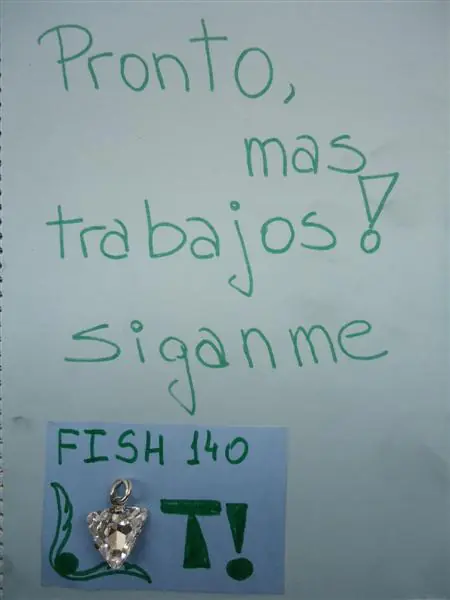 Pronto,
mas
trabajos!
siganme
FISH 140
T!